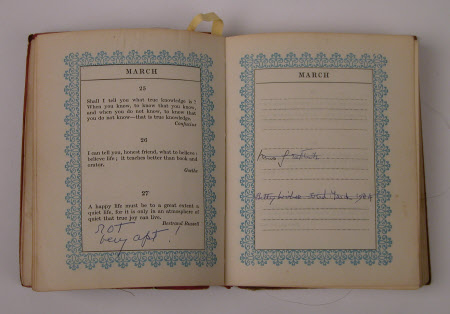 MARCH
25
Shall I tell you what true knowledge is?
When you know, to know that you know,
and when you do not know, to know that
you do not know—that is true knowledge.
Confucius
26
I can tell you, honest friend, what to believe:
believe life; it teaches better than book and
orator.
Goethe
27
A happy life must be to a great extent a
quiet life, for it is only in an atmosphere of
quiet that true joy can live.
Bertrand Russell
not
very apt!
MARCH
March, 1984